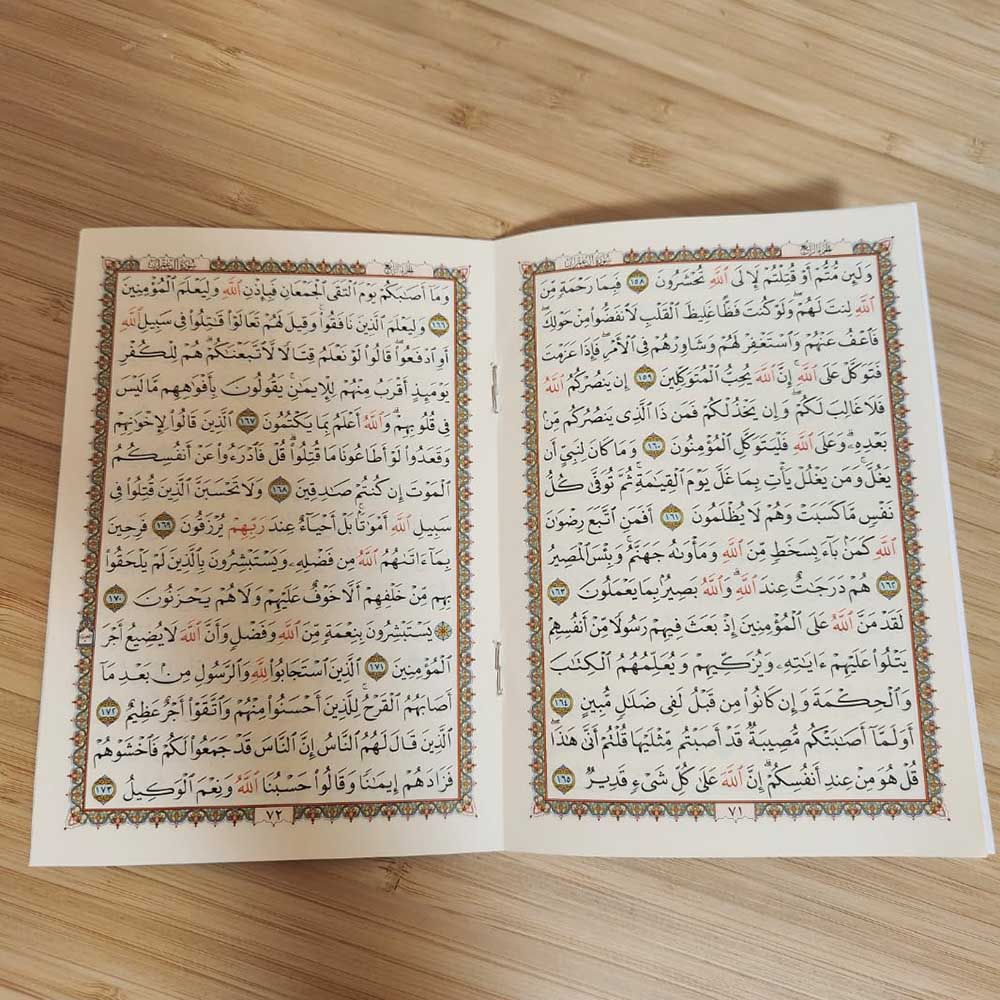 سُورَةُ آلِ عِمْرَانَ الجزء الرابع
وَلَئِن مُّتُّمْ أَوْ قُتِلْتُمْ لَإِلَى اللَّهِ تُحْشَرُونَ ١٥٨ فَبِمَا رَحْمَةٍ مِّنَ
اللَّهِ لِنتَ لَهُمْ وَلَوْ كُنتَ فَظًّا غَلِيظَ الْقَلْبِ لَانفَضُّوا مِنْ حَوْلِكَ
فَاعْفُ عَنْهُمْ وَاسْتَغْفِرْ لَهُمْ وَشَاوِرْهُمْ فِي الْأَمْرِ فَإِذَا عَزَمْتَ
فَتَوَكَّلْ عَلَى اللَّهِ إِنَّ اللَّهَ يُحِبُّ الْمُتَوَكِّلِينَ ١٥٩ إِن يَنصُرْكُمُ اللَّهُ
فَلَا غَالِبَ لَكُمْ وَإِن يَخْذُلْكُمْ فَمَن ذَا الَّذِي يَنصُرُكُم مِّن
بَعْدِهِ وَعَلَى اللَّهِ فَلْيَتَوَكَّلِ الْمُؤْمِنُونَ ١٦٠ وَمَا كَانَ لِنَبِيٍّ أَن
يَغُلَّ وَمَن يَغْلُلْ يَأْتِ بِمَا غَلَّ يَوْمَ الْقِيَامَةِ ثُمَّ تُوَفَّى كُلُّ
نَفْسٍ مَّا كَسَبَتْ وَهُمْ لَا يُظْلَمُونَ ١٦١ أَفَمَنِ اتَّبَعَ رِضْوَانَ
اللَّهِ كَمَن بَاءَ بِسَخَطٍ مِّنَ اللَّهِ وَمَأْوَاهُ جَهَنَّمُ وَبِئْسَ الْمَصِيرُ
١٦٢ هُمْ دَرَجَاتٌ عِندَ اللَّهِ وَاللَّهُ بَصِيرٌ بِمَا يَعْمَلُونَ ١٦٣
لَقَدْ مَنَّ اللَّهُ عَلَى الْمُؤْمِنِينَ إِذْ بَعَثَ فِيهِمْ رَسُولًا مِّنْ أَنفُسِهِمْ
يَتْلُوا عَلَيْهِمْ ءَايَاتِهِ وَيُزَكِّيهِمْ وَيُعَلِّمُهُمُ الْكِتَابَ
وَالْحِكْمَةَ وَإِن كَانُوا مِن قَبْلُ لَفِي ضَلَالٍ مُّبِينٍ ١٦٤
أَوَلَمَّا أَصَابَتْكُم مُّصِيبَةٌ قَدْ أَصَبْتُم مِّثْلَيْهَا قُلْتُمْ أَنَّى هَٰذَا
قُلْ هُوَ مِنْ عِندِ أَنفُسِكُمْ إِنَّ اللَّهَ عَلَى كُلِّ شَيْءٍ قَدِيرٌ ١٦٥
٧١
سُورَةُ آلِ عِمْرَانَ الجزء الرابع
وَمَا أَصَابَكُمْ يَوْمَ الْتَقَى الْجَمْعَانِ فَبِإِذْنِ اللَّهِ وَلِيَعْلَمَ الْمُؤْمِنِينَ
١٦٦ وَلِيَعْلَمَ الَّذِينَ نَافَقُوا وَقِيلَ لَهُمْ تَعَالَوْا قَاتِلُوا فِي سَبِيلِ اللَّهِ
أَوِ ادْفَعُوا قَالُوا لَوْ نَعْلَمُ قِتَالًا لَّاتَّبَعْنَاكُمْ هُمْ لِلْكُفْرِ
يَوْمَئِذٍ أَقْرَبُ مِنْهُمْ لِلْإِيمَانِ يَقُولُونَ بِأَفْوَاهِهِم مَّا لَيْسَ
فِي قُلُوبِهِمْ وَاللَّهُ أَعْلَمُ بِمَا يَكْتُمُونَ ١٦٧ الَّذِينَ قَالُوا لِإِخْوَانِهِمْ
وَقَعَدُوا لَوْ أَطَاعُونَا مَا قُتِلُوا قُلْ فَادْرَءُوا عَنْ أَنفُسِكُمُ
الْمَوْتَ إِن كُنتُمْ صَادِقِينَ ١٦٨ وَلَا تَحْسَبَنَّ الَّذِينَ قُتِلُوا فِي
سَبِيلِ اللَّهِ أَمْوَاتًا بَلْ أَحْيَاءٌ عِندَ رَبِّهِمْ يُرْزَقُونَ ١٦٩ فَرِحِينَ
بِمَا ءَاتَاهُمُ اللَّهُ مِن فَضْلِهِ وَيَسْتَبْشِرُونَ بِالَّذِينَ لَمْ يَلْحَقُوا
بِهِم مِّنْ خَلْفِهِمْ أَلَّا خَوْفٌ عَلَيْهِمْ وَلَا هُمْ يَحْزَنُونَ ١٧٠
يَسْتَبْشِرُونَ بِنِعْمَةٍ مِّنَ اللَّهِ وَفَضْلٍ وَأَنَّ اللَّهَ لَا يُضِيعُ أَجْرَ
الْمُؤْمِنِينَ ١٧١ الَّذِينَ اسْتَجَابُوا لِلَّهِ وَالرَّسُولِ مِن بَعْدِ مَا
أَصَابَهُمُ الْقَرْحُ لِلَّذِينَ أَحْسَنُوا مِنْهُمْ وَاتَّقَوْا أَجْرٌ عَظِيمٌ ١٧٢
الَّذِينَ قَالَ لَهُمُ النَّاسُ إِنَّ النَّاسَ قَدْ جَمَعُوا لَكُمْ فَاخْشَوْهُمْ
فَزَادَهُمْ إِيمَانًا وَقَالُوا حَسْبُنَا اللَّهُ وَنِعْمَ الْوَكِيلُ ١٧٣
٧٢